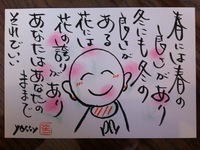 春には春の
良いがあり
冬にも冬の
良いが
ある
花には
花の誇りが
あり
あなたはあなたの
ままで
それでいい
yossy